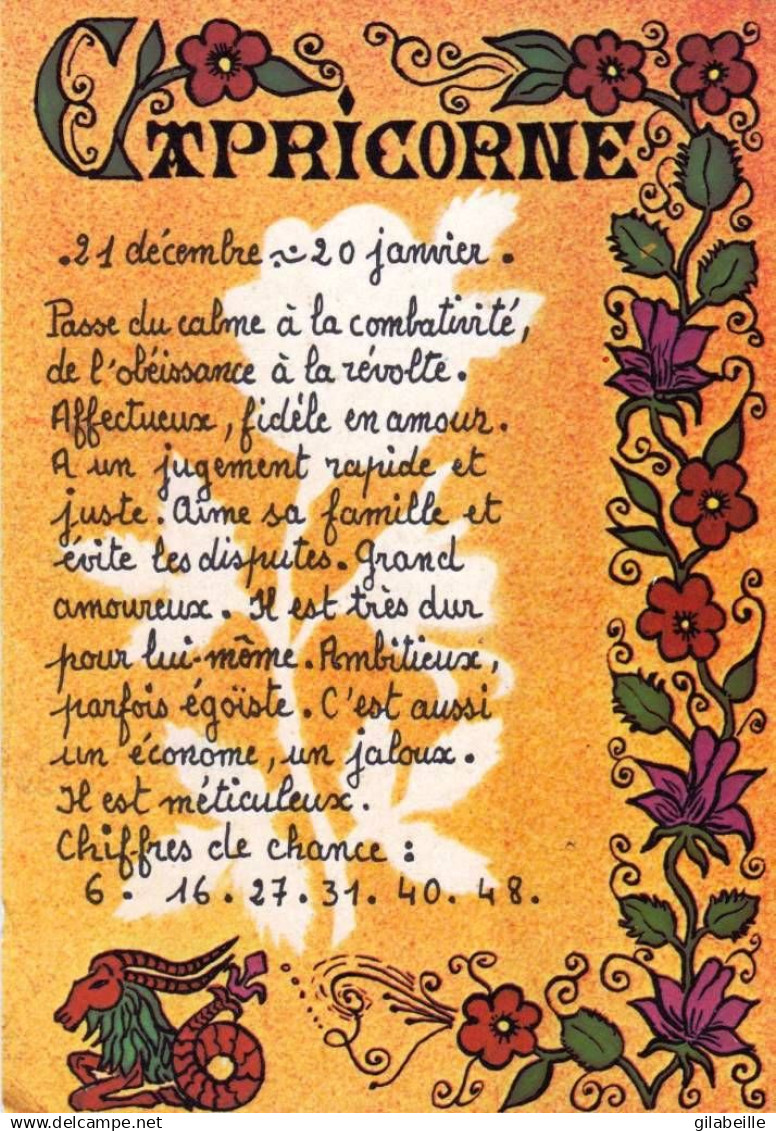 CAPRICORNE
. 21 décembre ~ 20 janvier .
Passe du calme à la combativité,
de l'obéissance à la révolte.
Affectueux, fidéle en amour.
A un jugement rapide et
juste. Aime sa famille et
évite les disputes. Grand
amoureux. Il est très dur
pour lui-môme. Ambitieux,
parfois égoïste. C'est aussi
un économe, un jaloux.
Il est méticuleux.
Chiffres de chance :
6. 16. 27. 31. 40. 48.
gilabeille